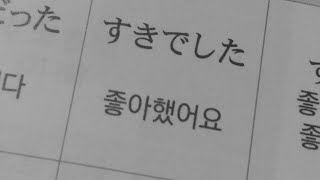 だった
すきでした
니다
좋아했어요
좋
좋